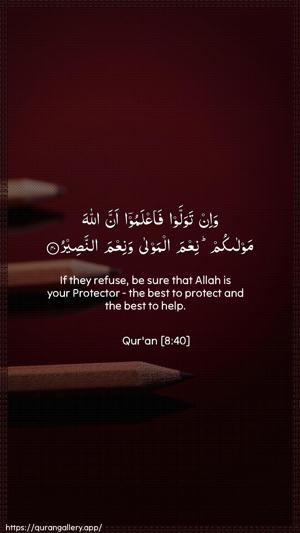 وَاِنْ تَوَلَّوْا فَاعْلَمُوْۤا اَنَّ اللّٰهَ
مَوْلٰىكُمْ ؕ نِعْمَ الْمَوْلٰى وَنِعْمَ النَّصِيْرُ ۝
If they refuse, be sure that Allah is
your Protector - the best to protect and
the best to help.
Qur'an [8:40]
https://qurangallery.app/